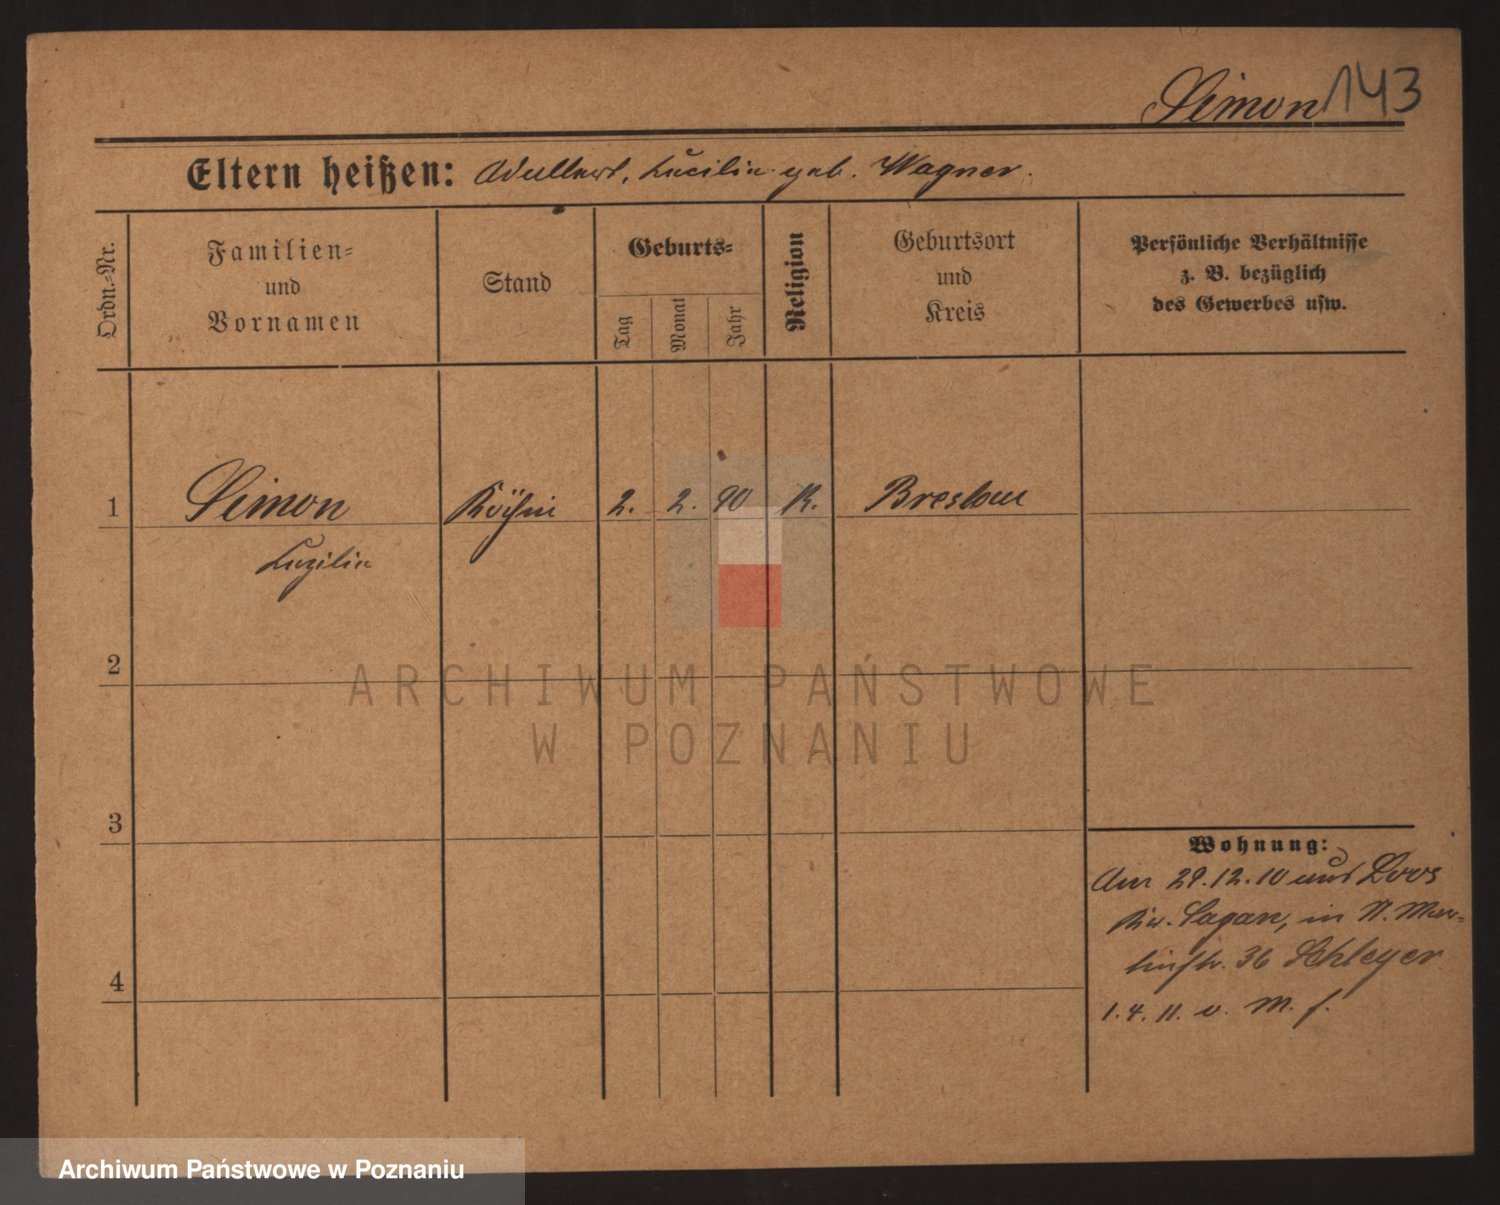 Simon 143
Eltern heißen: Adalbert, Luzilia geb. Wagner.
Ordn.-Nr.
Familien-
und
Vornamen
Stand
Geburts-
Tag
Monat
Jahr
Religion
Geburtsort
und
Kreis
Persönliche Verhältnisse
z. B. bezüglich
des Gewerbes usw.
1 Simon Köchin 2. 2. 90 K. Breslau
Luzilia
2
3
4
Wohnung:
Am 29.12.10 aus Loos
Kr. Sagan, in St. Mar-
tinstr. 36 Schleyer
1.4.11. v. M. f.
ARCHIWUM PAŃSTWOWE
W POZNANIU
Archiwum Państwowe w Poznaniu